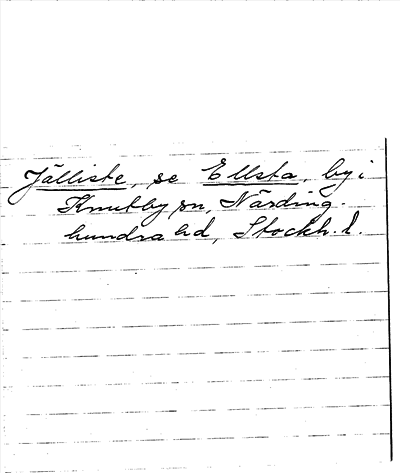 Jälliste, se Ellsta, by i
Knutby sn, Närding-
hundra hd, Stockh. l.